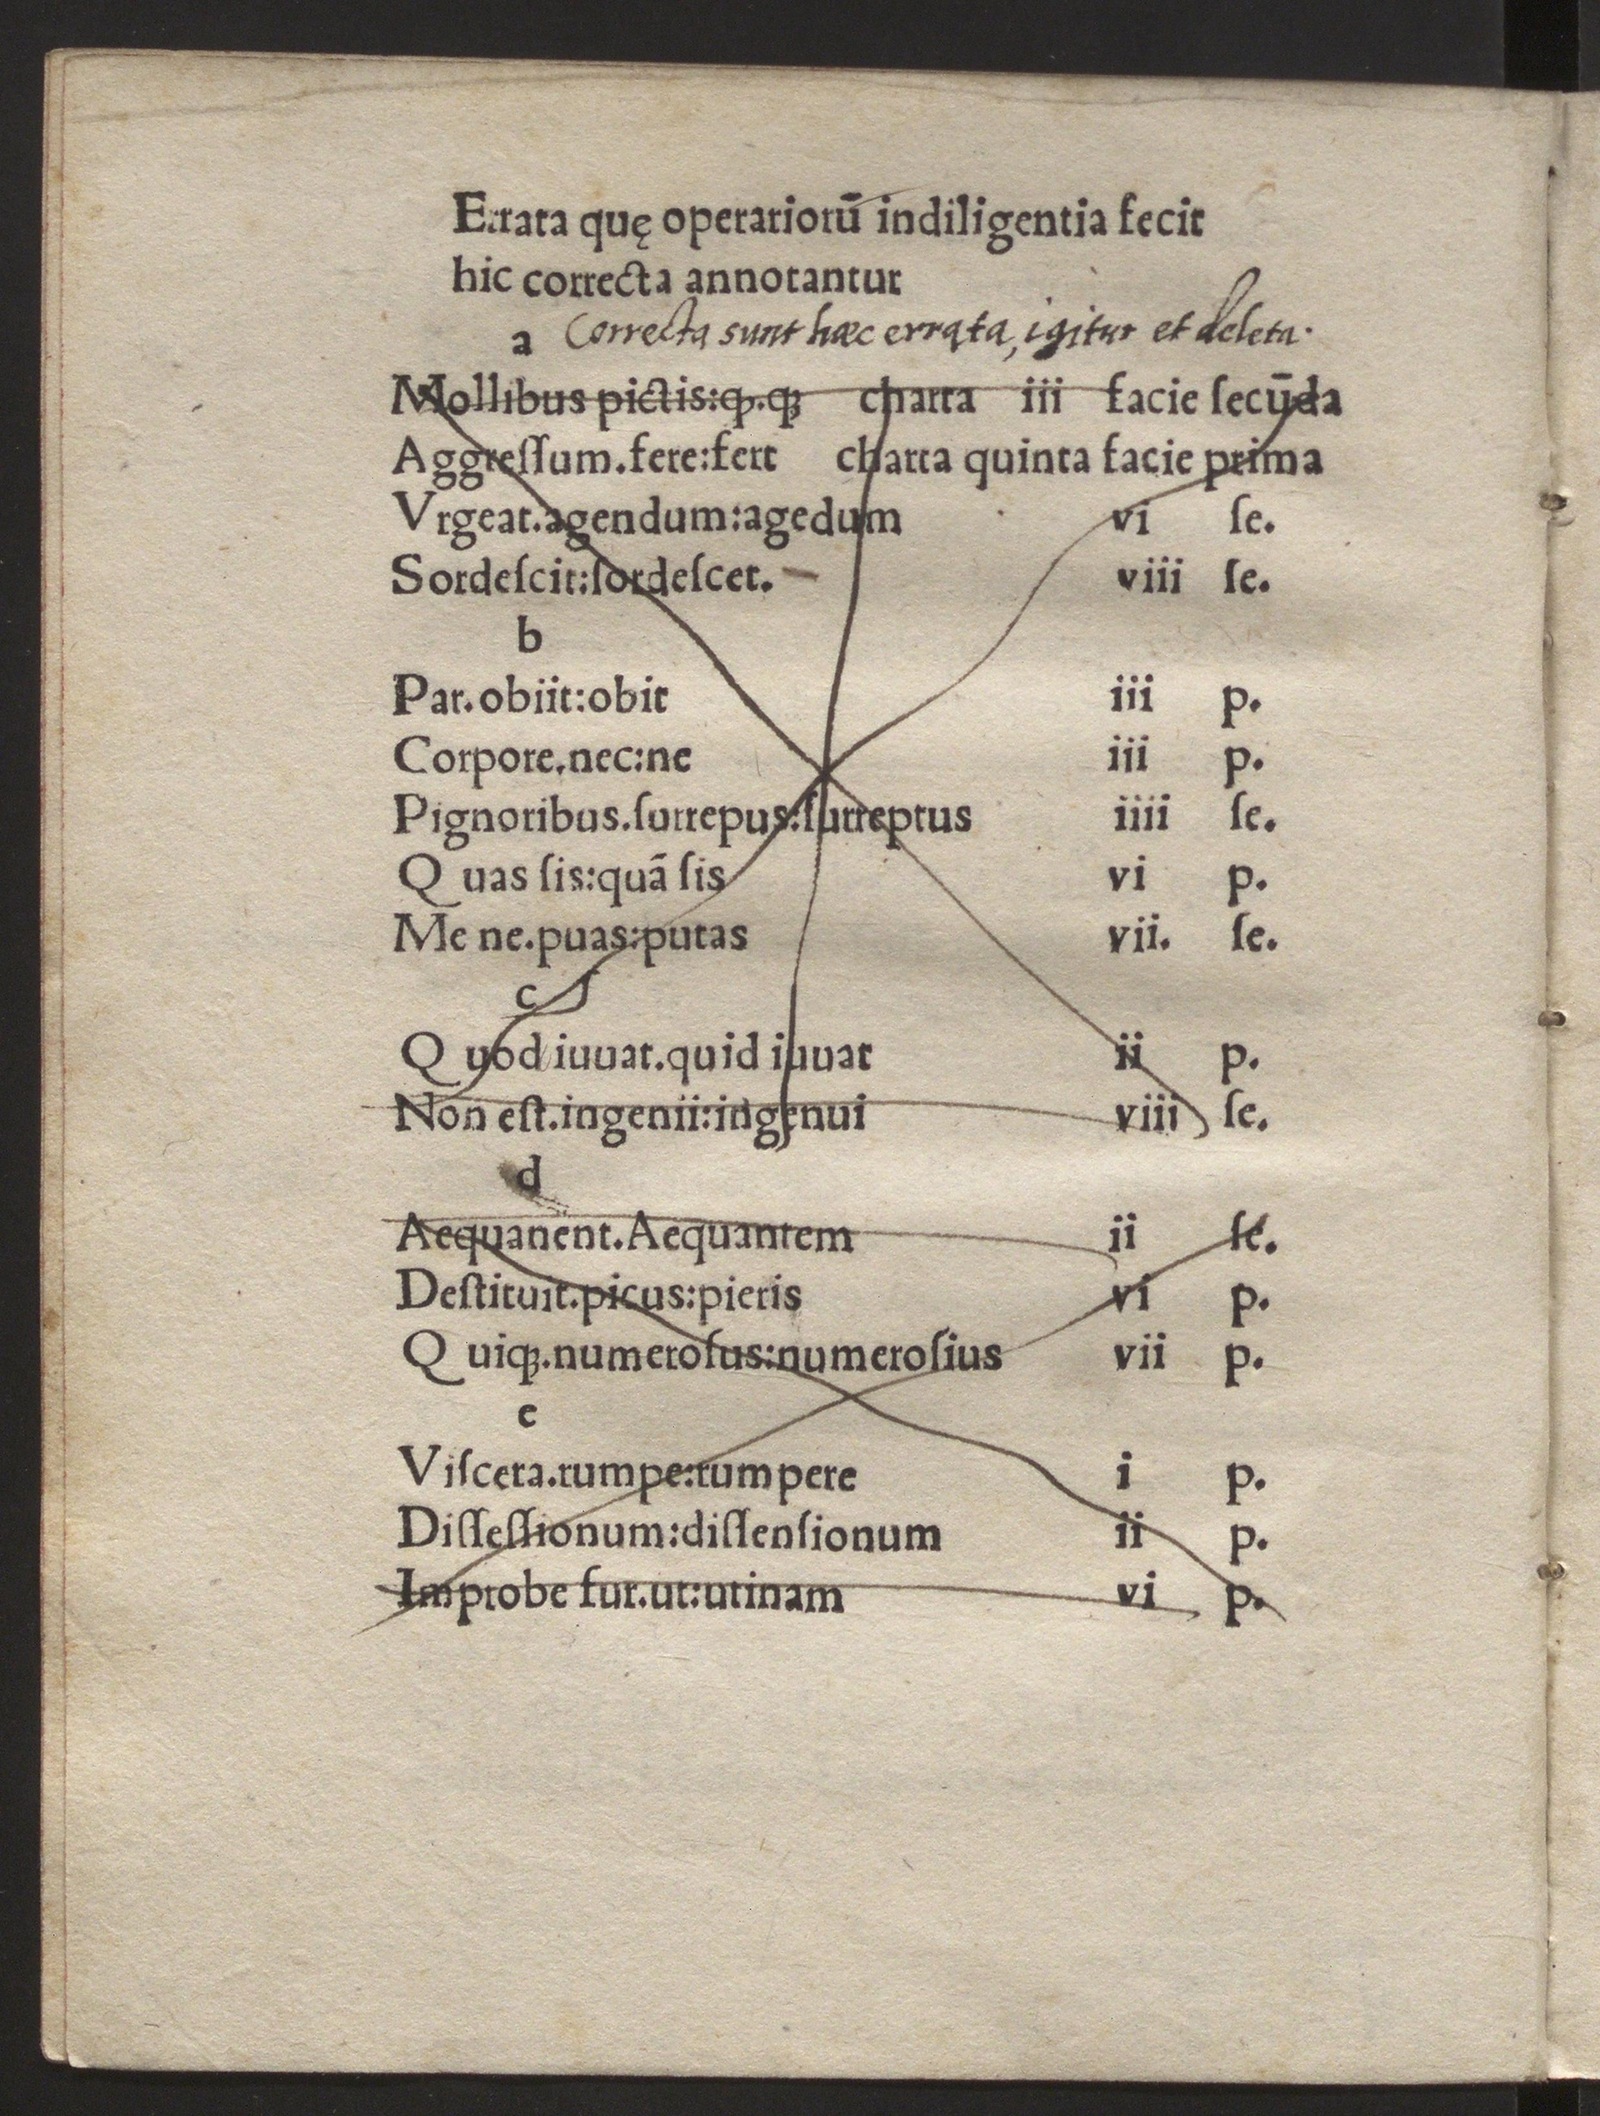 Errata quę operariorū indiligentia fecit
hic correcta annotantur
a Correcta sunt hæc errata, igitur et deleta.
Mollibus pictis:ꝙ.ꝗꝫ charta iii facie ſecūda
Aggreſſum.fere:fert charta quinta facie prima
Vrgeat.agendum:agedum vi ſe.
Sordeſcit:ſordeſcet. viii ſe.
b
Par.obiit:obit iii p.
Corpore.nec:ne iii p.
Pignoribus.ſurrepus:ſurreptus iiii ſe.
Q uas ſis:quā ſis vi p.
Me ne.puas:putas vii. ſe.
c
Q uod iuuat.quid iuuat ii p.
Non eſt.ingenii:ingenui viii ſe.
d
Aequanent.Aequantem ii ſe.
Deſtituit.picus:pieris vi p.
Q uiqꝫ.numeroſus:numeroſius vii p.
e
Viſcera.rumpe:rumpere i p.
Diſſeſſionum:diſſenſionum ii p.
Improbe fur.ut:utinam vi p.